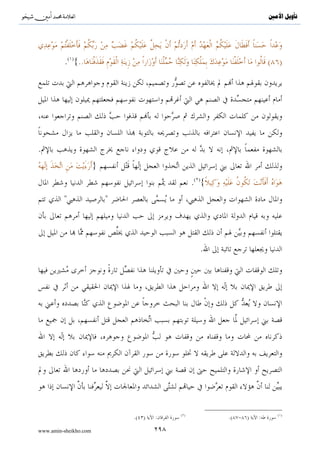 تأويل الأمين
العلامة محمد أمين شيخو
وَعْدًا حَسَنًا أَفَطَالَ عَلَيْكُمُ الْعَهْدُ أَمْ أَرَدْتُمْ أَنْ يَحِلَّ عَلَيْكُمْ غَضَبٌ مِنْ رَبِّكُمْ فَأَخْلَفْتُمْ مَوْعِدِي
(٨٦) قَالُوا مَا أَخْلَفْنَا مَوْعِدَكَ بِمَلْكِنَا وَلَكِنَّا حُمِّلْنَا أَوْزَارًا مِنْ زِينَةِ الْقَوْمِ فَقَذَفْنَاهَا..}(١).
يريدون بقولهم هذا أنهم لم يخالفوه عن تصوُّر وتصميم، لكن زينة القوم وجواهرهم التي بدت تلمع
أمام أعينهم متجسِّدة في الصنم هي التي أغرتهم واستهوت نفوسهم فجعلتهم يميلون إليها هذا الميل
ويقولون من كلمات الكفر والشرك ثم صرَّحوا له بأنهم قذفوا حبَّ ذلك الصنم وتراجعوا عنه،
ولكن ما يفيد الإنسان اعترافه بالذنب وتصريحه بالتوبة بهذا اللسان والقلب ما يزال مشحوناً
بالشهوة مفعماً بالإثم، إنه لا بدَّ له من علاج قوي ودواء ناجع يخرج الشهوة ويذهب بالإثم.
ولذلك أمر الله تعالى بني إسرائيل الذين اتَّخذوا العجل إلهاً قتل أنفسهم {أَرَأَيْتَ مَنِ اتَّخَذَ إِلَهَهُ
هَوَاهُ أَفَأَنْتَ تَكُونُ عَلَيْهِ وَكِيلًا}(٢). نعم لقد يمَّم بنوا إسرائيل نفوسهم شطر الدنيا وشطر المال
والمال مادة الشهوات والعجل الذهبي، أو ما يُسمَّى بالعصر الحاضر "بالرصيد الذهبي" الذي تتم
عليه وبه قيام الدولة المادي والذي يهدف ويرمز إلى حب الدنيا وميلهم إليها أمرهم تعالى بأن
يقتلوا أنفسهم وبيَّن لهم أن ذلك القتل هو السبب الوحيد الذي يخلِّص نفوسهم ممَّا بها من الميل إلى
الدنيا ويجعلها ترجع تائبة إلى الله.
وتلك الوقفات التي وقفناها بين حين وحين في تأويلنا هذا نفصِّل تارةً ونوجز أخرى مُشيرين فيها
إلى طريق الإيمان بلا إلَه إلا الله ومراحل هذا الطريق، وما لهذا الإيمان الحقيقي من أثر في نفس
الإنسان ولا يُعدُّ كل ذلك وإنْ طال بنا البحث خروجاً عن الموضوع الذي كنَّا بصدده وأعني به
قصة بني إسرائيل لمَّا جعل الله وسيلة توبتهم بسبب اتِّخاذهم العجل قتل أنفسهم، بل إن جميع ما
ذكرناه من لمحات وما وقفناه من وقفات هو لبُّ الموضوع وجوهره، فالإيمان بلا إلَه إلا الله
والتعريف به والدلالة على طريقه لا تخلو سورة من سور القرآن الكريم منه سواء كان ذلك بطريق
التصريح أو الإشارة والتلميح حتى إن قصة بني إسرائيل التي نحن بصددها ما أوردها الله تعالى ولم
يبيِّن لنا أنَّ هؤلاء القوم تعرَّضوا في حياتهم لشتَّى الشدائد والمعالجات إلاَّ ليعرِّفنا بأنَّ الإنسان إذا هو
(١) سورة طه: الآية (٨٦-٨٧).
(٢) سورة الفرقان: الآية (٤٣).
٢٩٨
www.amin-sheikho.com